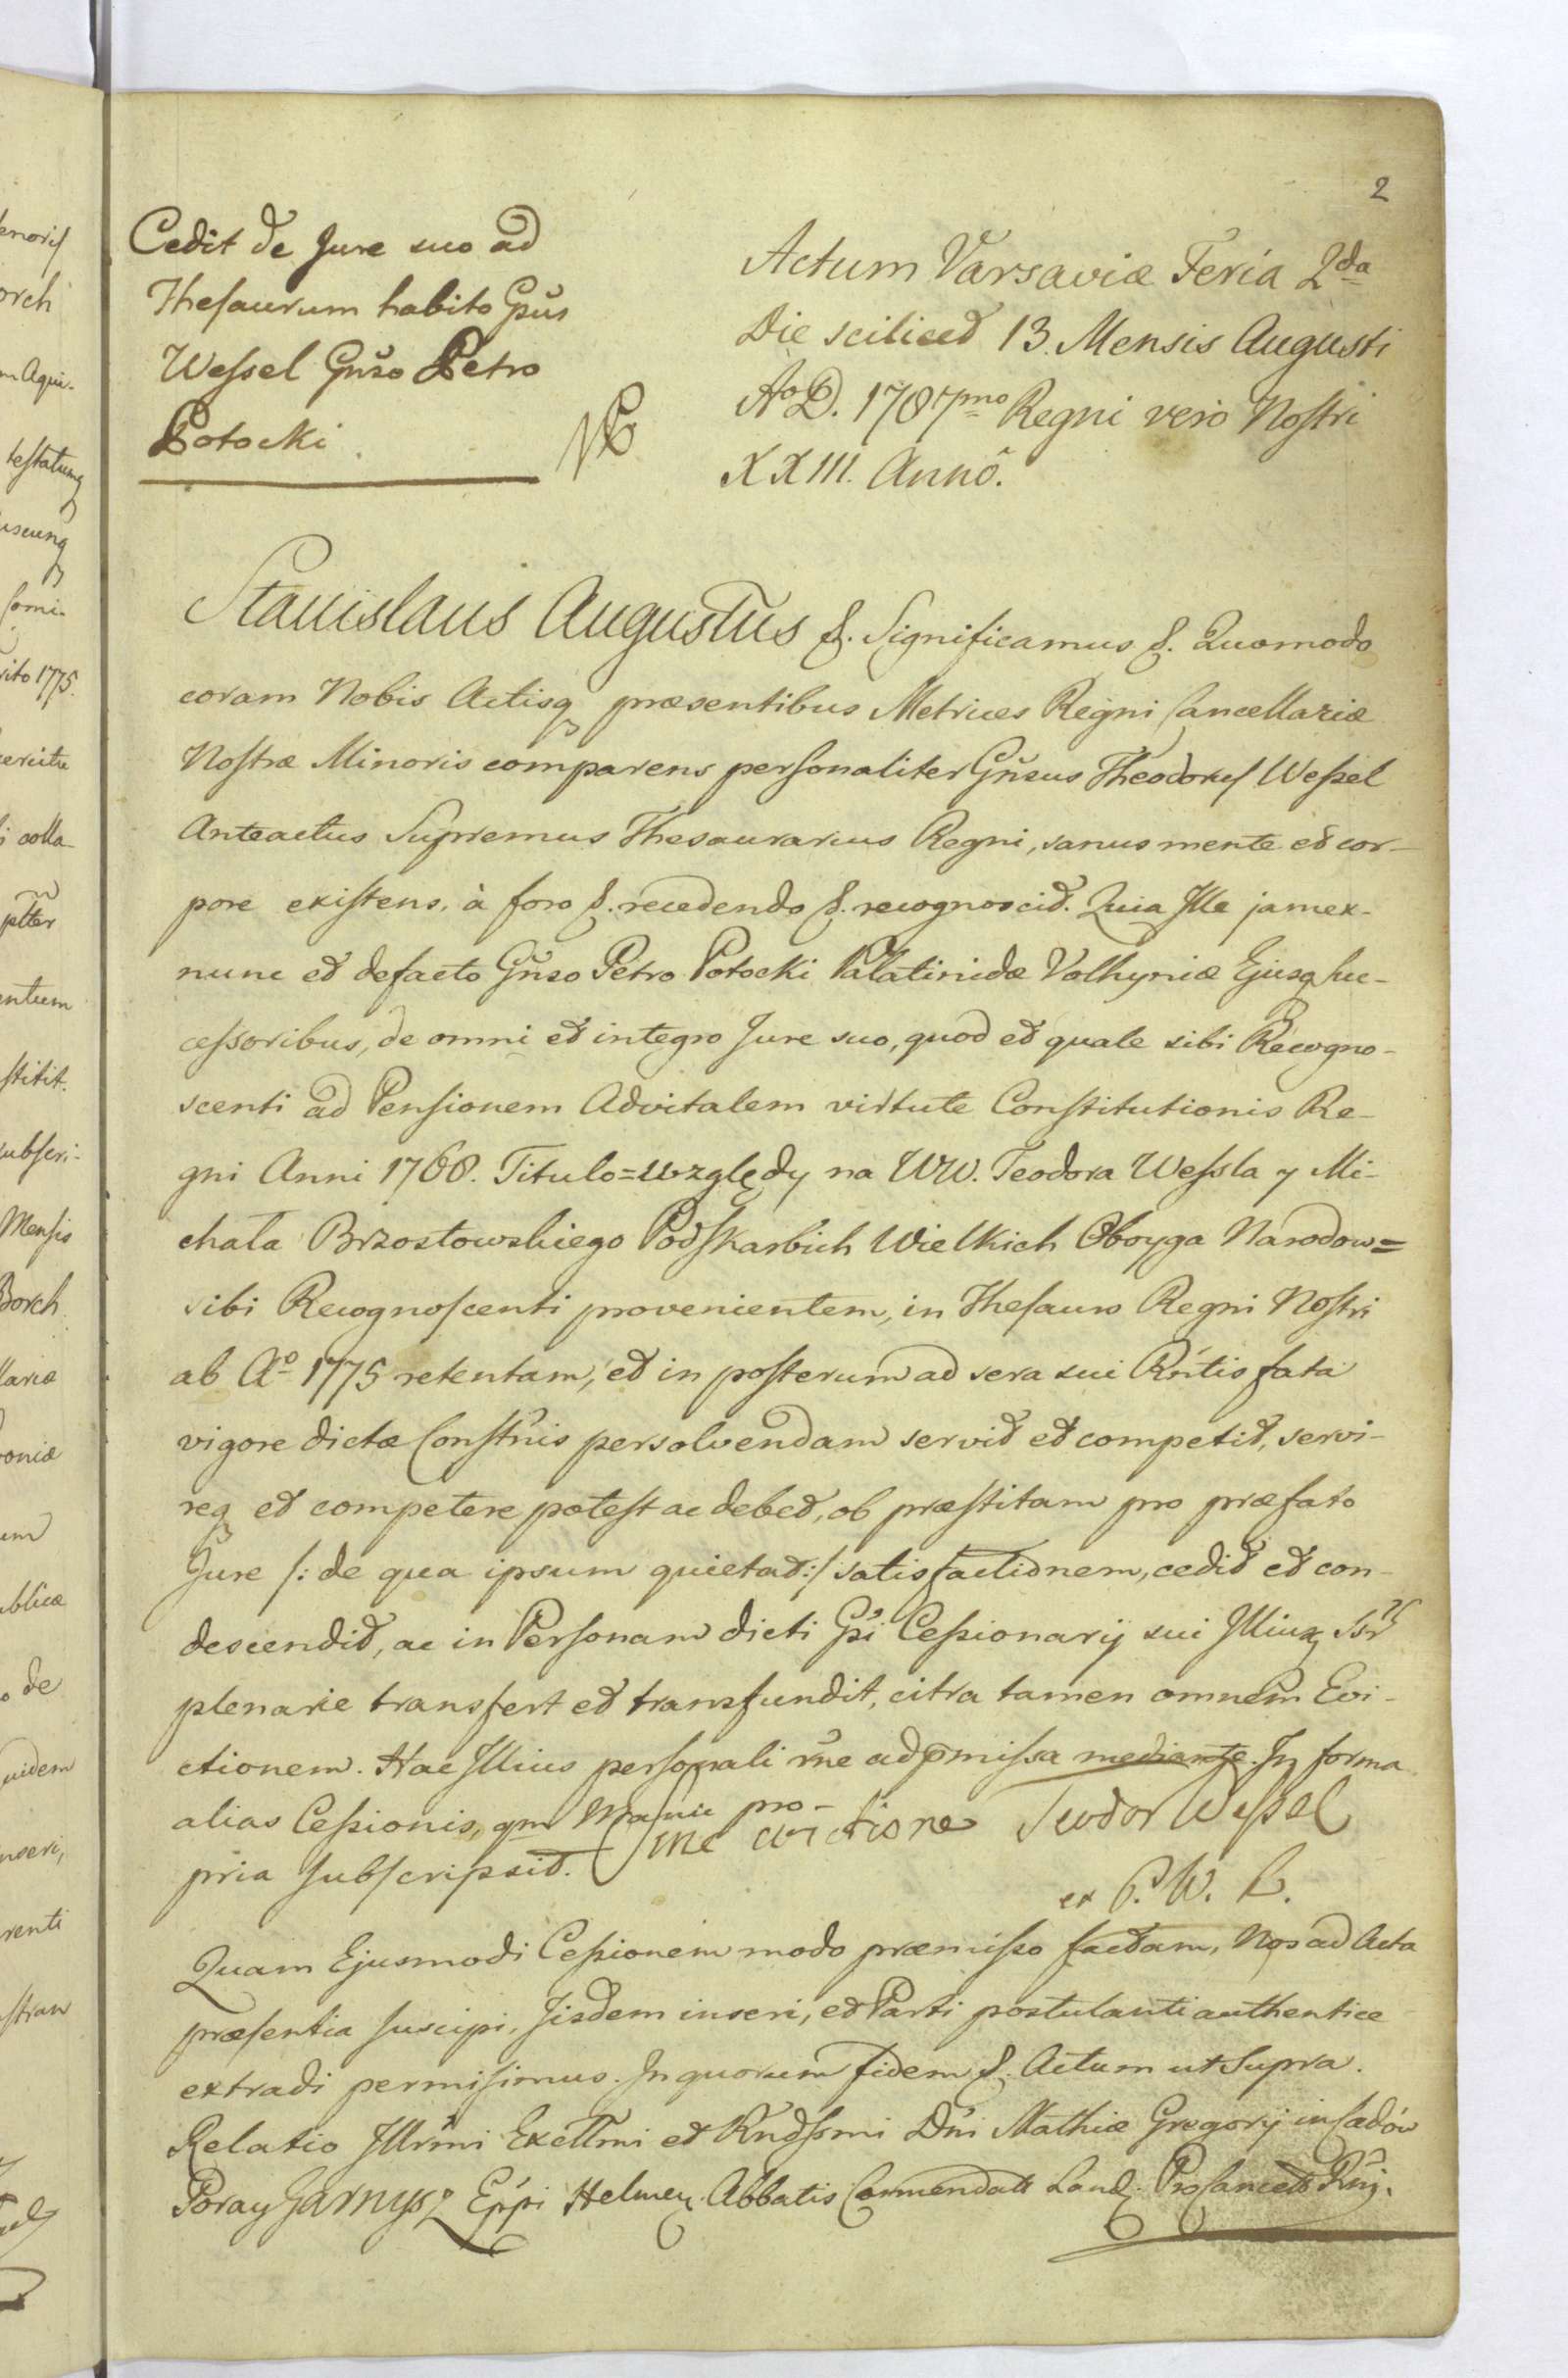 2
Cedit de Jure suo ad
Thesaurum habito Gnũs
Wessel Gnẽo Petro
Potocki
Actum Varsaviæ Feria 2da
Die scilicet 13. Mensis Augusti
Ao D. 1787mo Regni vero Nostri
XXIII. Annô.
Stanislaus Augustus &. Significamus &. Quomodo
coram Nobis Actisq præsentibus Metrices Regni Cancellariæ
Nostræ Minoris comparens personaliter Gnẽsus Theodorus Wessel
Anteactus Supremus Thesaurarius Regni, sanus mente et cor-
pore existens, à foro &. recedendo &. recognoscit. Quia Ille jam ex-
nunc et defacto Gnẽso Petro Potocki Palatinidæ Volhyniæ Ejusq suc-
cessoribus, de omni et integro Jure suo, quod et quale sibi Recogno-
scenti ad Pensionem Advitalem virtute Constitutionis Re-
gni Anni 1768. Titulo=względy na WW. Teodora Wessla y Mi-
chała Brzostowskiego Podskarbich Wielkich Oboyga Narodow=
sibi Recognoscenti provenientem, in Thesauro Regni Nostri
ab Ao 1775 retentam, et in posterum ad sera sui Rñtis fata
vigore dictæ Constñis persolvendam servit et competit, servi-
req et competere potest ac debet, ob præstitam pro præfato
Jure /: de qua ipsum quietat :/ satisfactionem, cedit et con-
descendit, ac in Personam dicti Gñi Cessionarij sui Illiusq
plenarie transfert et transfundit, citra tamen omnem Evi-
ctionem. Hac Illius personali rñe ad pmissa mediante. In forma
alias Cessionis, qm Manu pro-
pria subscripsit. Sine evictione Teodor Wessel
ex P. W. K.
Quam Ejusmodi Cessionem modo præmisso factam, Nos ad Acta
præsentia suscipi, Iisdem inseri, et Parti postulanti authentice
extradi permisimus. In quorum fidem &. Actum ut Supra.
Relatio Illrmi Excllmi et Rndssmi Dñi Mathiæ Gregorij in Sadów
Poray Garnysz Eppi Helmen. Abbatis Commendatt Land. ProCancell Rni.